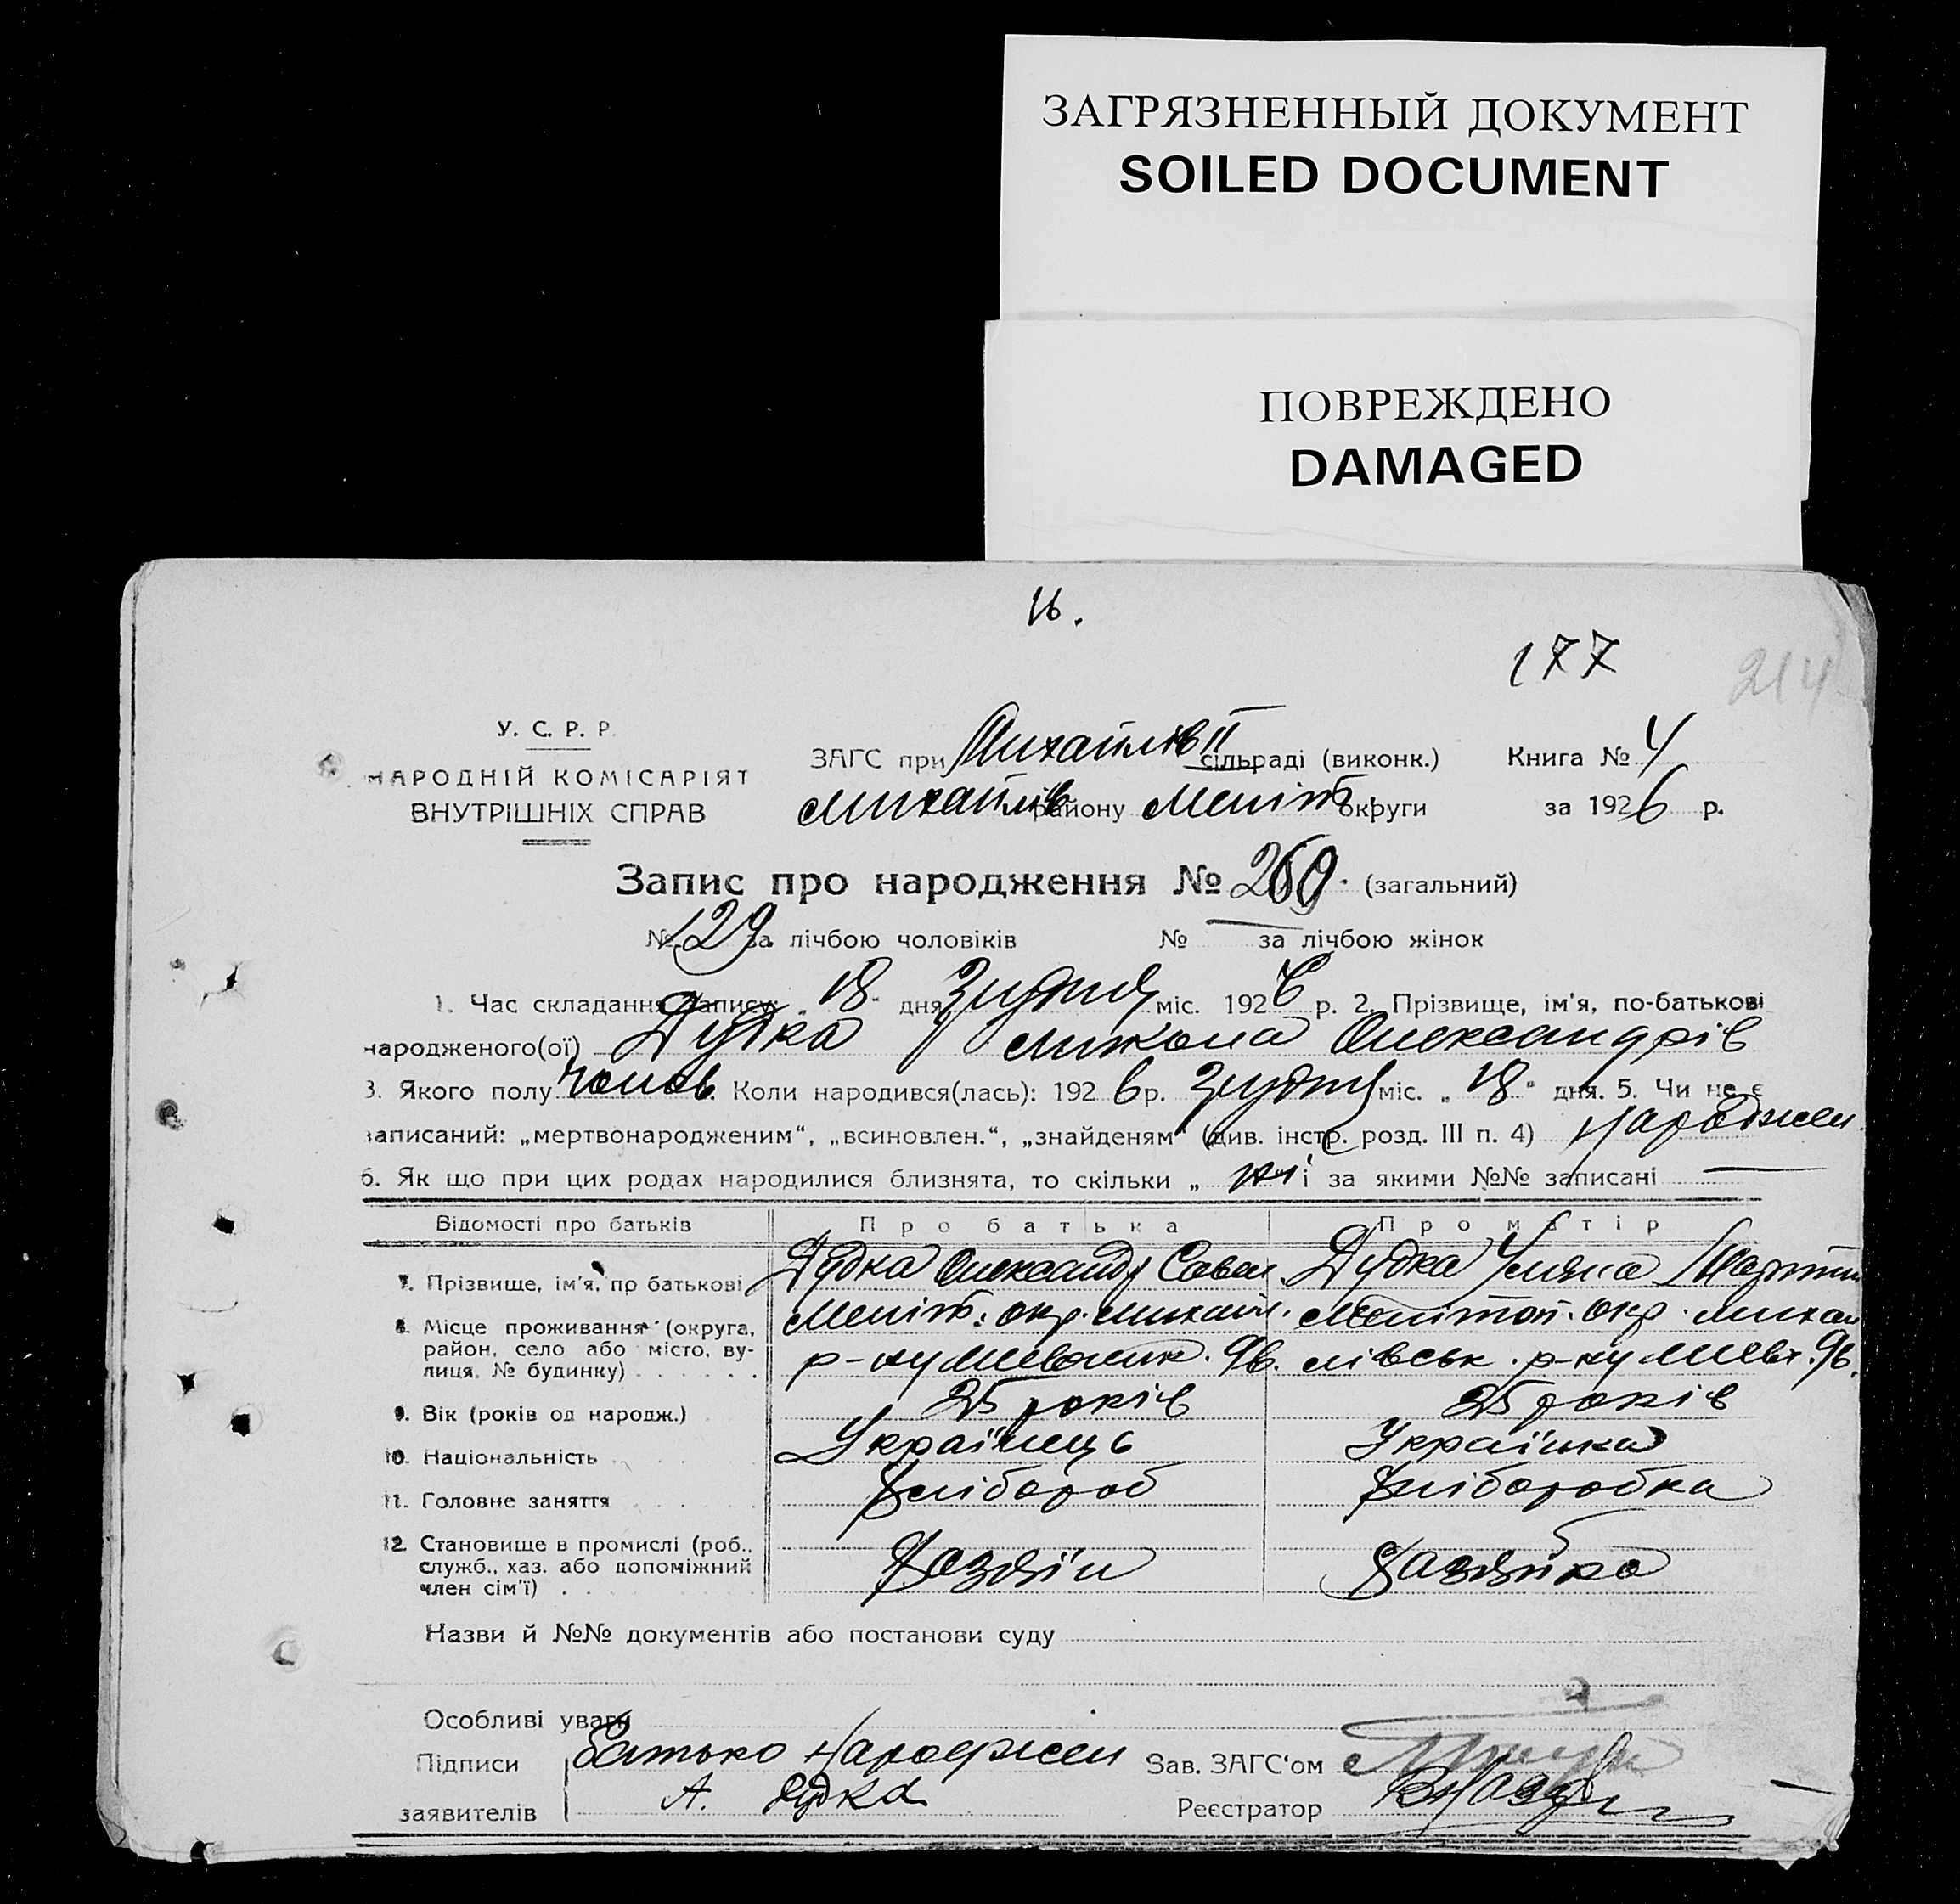 ЗАГРЯЗНЕННЫЙ ДОКУМЕНТ
SOILED DOCUMENT
ПОВРЕЖДЕНО
DAMAGED
16.
177
214
У. С. Р. Р.
НАРОДНІЙ КОМІСАРІЯТ
ВНУТРІШНІХ СПРАВ
ЗАГС при Михайлів II сільраді (виконк.) Книга № 4
Михайлів району Меліт. округи за 1926 р.
Запис про народження № 269. (загальний)
№ 129 за лічбою чоловіків № — за лічбою жінок
1. Час складання запису: 18 дня Грудня міс. 1926 р. 2. Прізвище, ім'я, по-батькові
народженого(ої) Дудка Микола Олександрів
3. Якого полу чолов. Коли народився(лась): 1926 р. Грудня міс. „ 18 " дня. 5. Чи не є
записаний: „мертвонародженим“, „всиновлен.“, „знайденям“ (див. інстр. розд. III п. 4) народжен.
6. Як що при цих родах народилися близнята, то скільки „ і за якими №№ записані —
Відомості про батьків Про батька Про матір
7. Прізвище, ім'я, по батькові Дудка Олександр Савел. Дудка Уляна Мартин
8. Місце проживання (округа, район, село або місто, вулиця, № будинку) Меліт. окр. Михайл. р-ну 96. Мелітоп. окр. Михай лівськ. р-ну 96.
9. Вік (років од народж.) 25 років 25 років
10. Національність Українець Українка
11. Головне заняття Хлібороб Хліборобка
12. Становище в промислі (роб., служб., хаз. або допоміжний член сім'ї) Хазяїн Хазяйка
Назви й №№ документів або постанови суду
Особливі уваги
Підписи заявителів Батько народжен
А. Дудка
Зав. ЗАГС'ом
Реєстратор